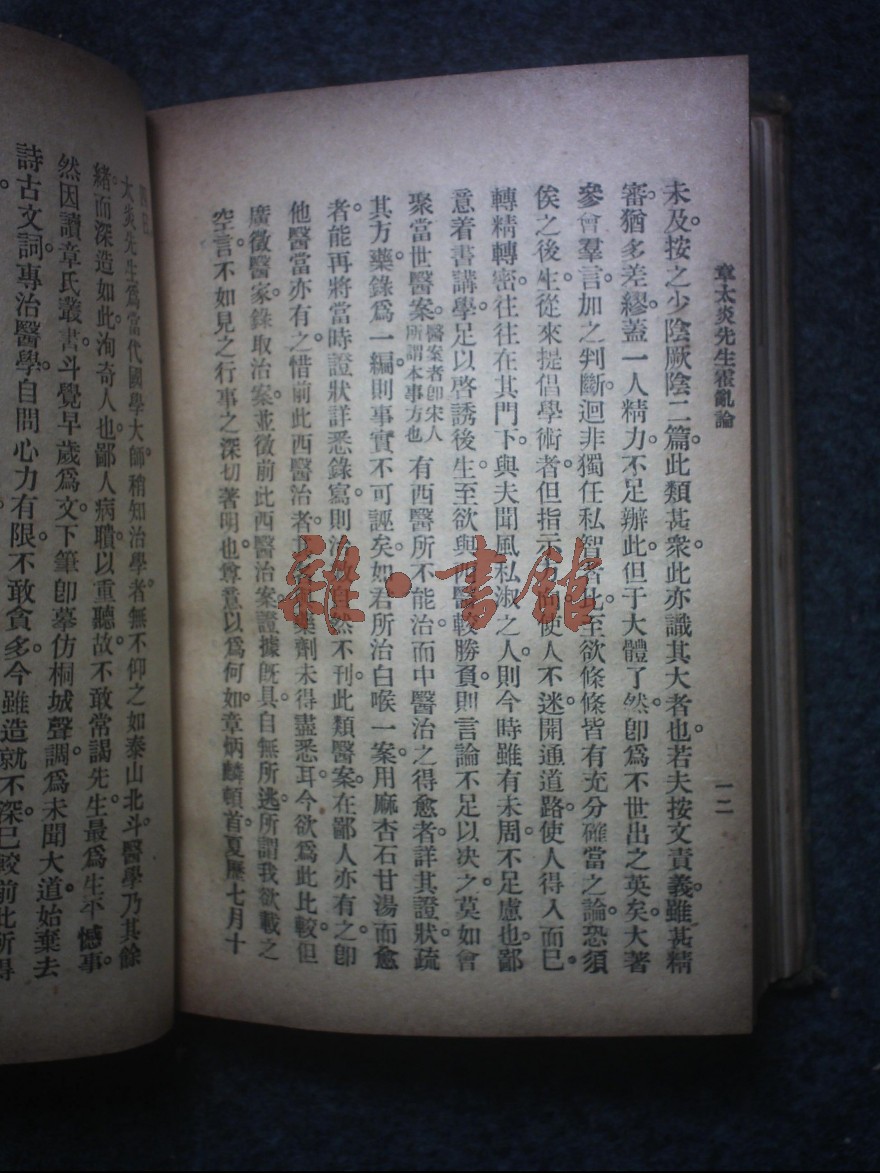 章太炎先生霍亂論
一二
未及按之少陰厥陰二篇。此類甚衆。此亦識其大者也。若夫按文責義。雖甚精
審。猶多差繆。蓋一人精力。不足辦此。但于大體了然。卽爲不世出之英矣。大著
參會羣言。加之判斷。迥非獨任私智者比。至欲條條皆有充分確當之論。恐須
俟之後生。從來提倡學術者。但指示方 使人不迷。開通道路。使人得入而已。
轉精轉密。往往在其門下。與夫聞風私淑之人。則今時雖有未周。不足慮也。鄙
意着書講學。足以啓誘後生。至欲與西醫較勝負。則言論不足以决之。莫如會
聚當世醫案。醫案者卽宋人所謂本事方也 有西醫所不能治。而中醫治之得愈者。詳其證狀。疏
其方藥。錄爲一編。則事實不可誣矣。如君所治白喉一案。用麻杏石甘湯而愈
者。能再將當時證狀詳悉錄寫。則 自然不刊。此類醫案。在鄙人亦有之。卽
他醫當亦有之。惜前此西醫治者。 藥劑未得盡悉耳。今欲爲此比較。但
廣徵醫家錄取治案。並徵前此西醫治案。證據旣具。自無所逃。所謂我欲載之
空言。不如見之行事之深切著明也。尊意以爲何如。章炳麟頓首夏歷七月十
四日
太炎先生爲當代國學大師。稍知治學者。無不仰之如泰山北斗。醫學乃其餘
緒。而深造如此。洵奇人也。鄙人病聵。以重聽故。不敢常謁先生。最爲生平憾事。
然因讀章氏叢書。斗覺早歲爲文。下筆卽摹仿桐城聲調。爲未聞大道。始棄去
詩古文詞。專治醫學。自問心力有限。不敢貪多。今雖造就不深。已較前此所得
雜·書館